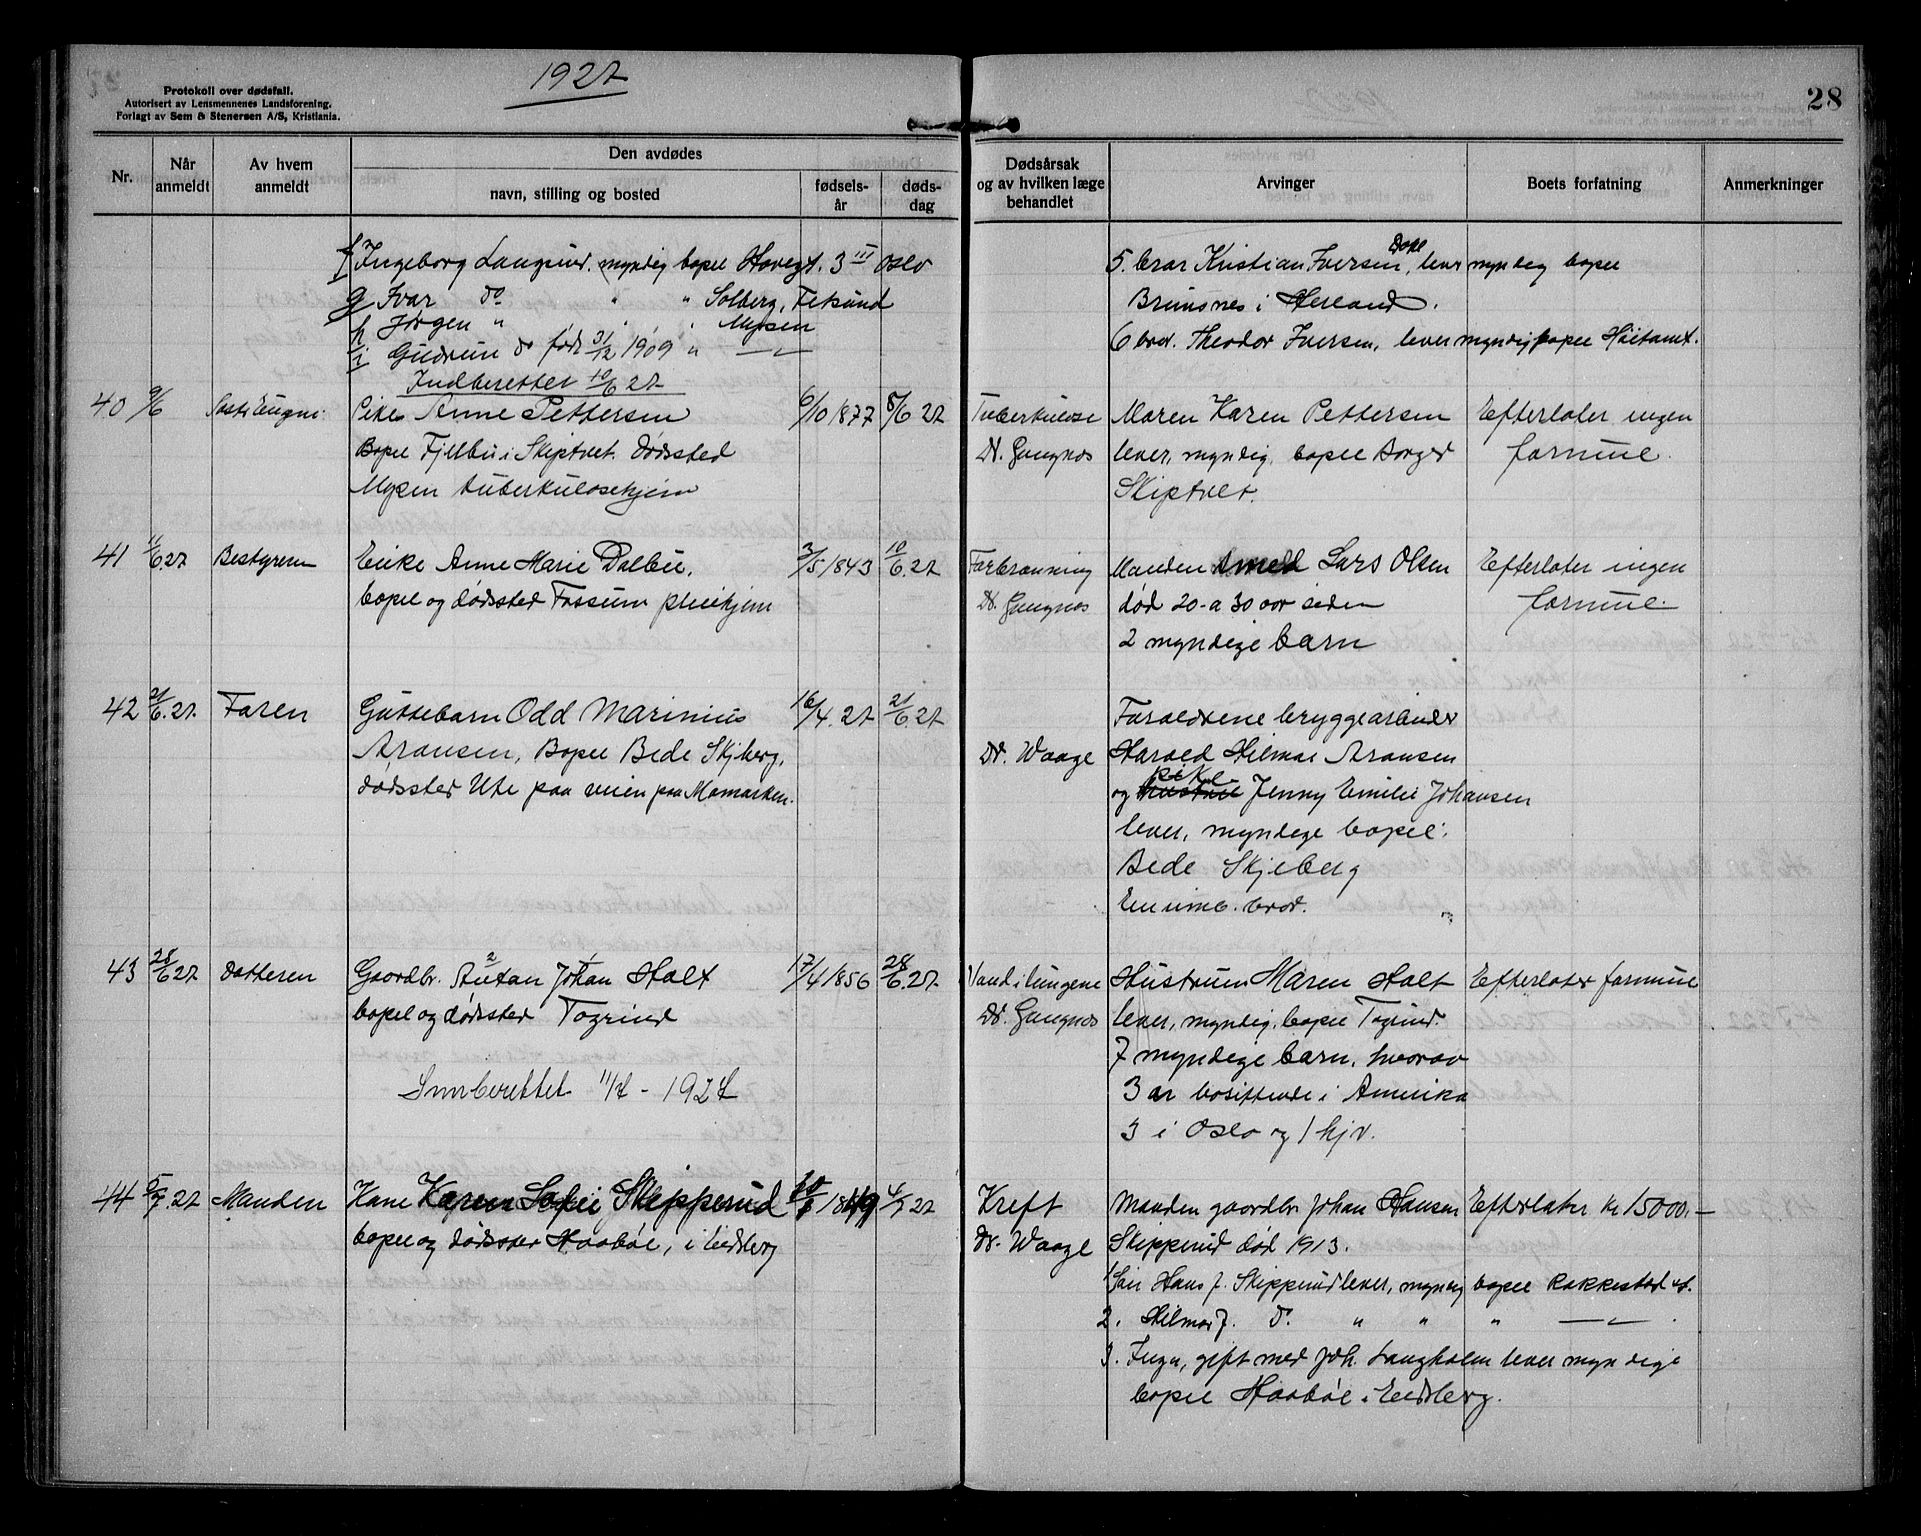 1927
Protokoll over dødsfall.
Autorisert av Lensmennenes Landsforening.
Forlagt av Sem & Stenersen A/S, Kristiania.
28
Nr.
Når anmeldt
Av hvem anmeldt
Den avdødes
navn, stilling og bosted
fødsels-år
døds-dag
Dødsårsak og av hvilken læge behandlet
Arvinger
Boets forfatning
Anmerkninger
f Ingeborg myndig bopel 3 III Oslo
g Ivar do " " Solberg, Fetsund
h Jørgen " " " Mysen
i Gudrun do født 31/12 1909 " — " —
Indberettet 10/6 27
5. bror Kristian Iversen, lever myndig bopel
i Herland.
6 bror. Theodor Iversen, lever myndig bopel
40 9/6 Pike Anne Pettersen 6/10 1877 8/6 27 Tuberkulose Maren Karen Pettersen Efterlater ingen
Bopel Fjellbu i Skiptvet. Dødssted Dr. Gangnæs lever, myndig, bopel formue.
Mysen tuberkulosehjem Skiptvet.
41 11/6.27 Bestyreren Enke Anne Marie Dalbu, 3/5 1843 10/6.27 Forbrænning Manden Lars Olsen Efterlater ingen
bopel og dødssted Fossum pleiehjem Dr. Gangnæs død 20-a 30 aar siden formue.
2 myndige barn
42 21/6.27. Faren Guttebarn Odd Marinius 16/4.27 21/6.27 Forældrene bryggearbeider
Aronsen, Bopel Bede Skjeberg, Dr. Waage Harald Hilmar Aronsen
dødssted Ute paa veien paa Momarken. og pike Jenny Emilie Johansen
lever, myndige bopel:
Bede Skjeberg
En umb. bror.
43 28/6 27 Datteren Gaardbr. Autan Johan Holt 17/4 1856 28/6.27. Vand i lungene Hustruen Maren Holt Efterlater formue
bopel og dødssted Togrind Dr. Gangnæs lever, myndig, bopel Togrind.
7 myndige barn, hvorav
Innberettet 11/7 - 1927 3 er bosittende i Amerika
3 i Oslo og 1 hjv.
44 5/7.27 Manden Kone Karen Sofie Skipperud 1849 4/7 27 Kreft Manden gaardbr. Johan Hansen Efterlater kr 15000.—
bopel og dødssted Haabøl, i Eidsberg Dr. Waage Skipperud død 1913.
1 Søn Hans J. Skipperud lever, myndig bopel Rakkestad st.
2. Hilmar J. do. " " " — " — .
3. Inga, gift med Joh. Langholm lever myndige
bopel Haabøl i Eidsberg.